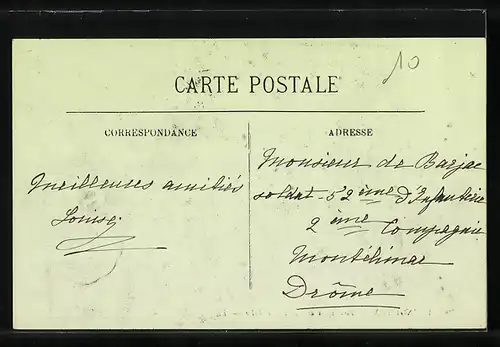 10
CARTE POSTALE
CORRESPONDANCE
Meilleures amitiés
Louise
ADRESSE
Monsieur de Barjac
soldat 52ème d'Infanterie
2ème Compagnie
Montélimar
Drôme